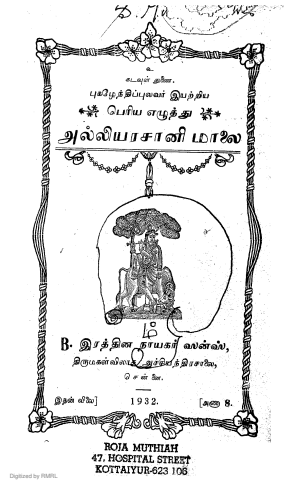 உ
கடவுள் துணை.
புகழேந்திப்புலவர் இயற்றிய
பெரிய எழுத்து
அல்லியரசானி மாலை
B. இரத்தின நாயகர் ஸன்ஸ்,
திருமகள்விலாச அச்சியந்திரசாலை,
சென்னை.
இதன் விலை] 1932. [அணா 8.
ROJA MUTHIAH
47, HOSPITAL STREET
KOTTAIYUR-623 106
Digitized by RMRL